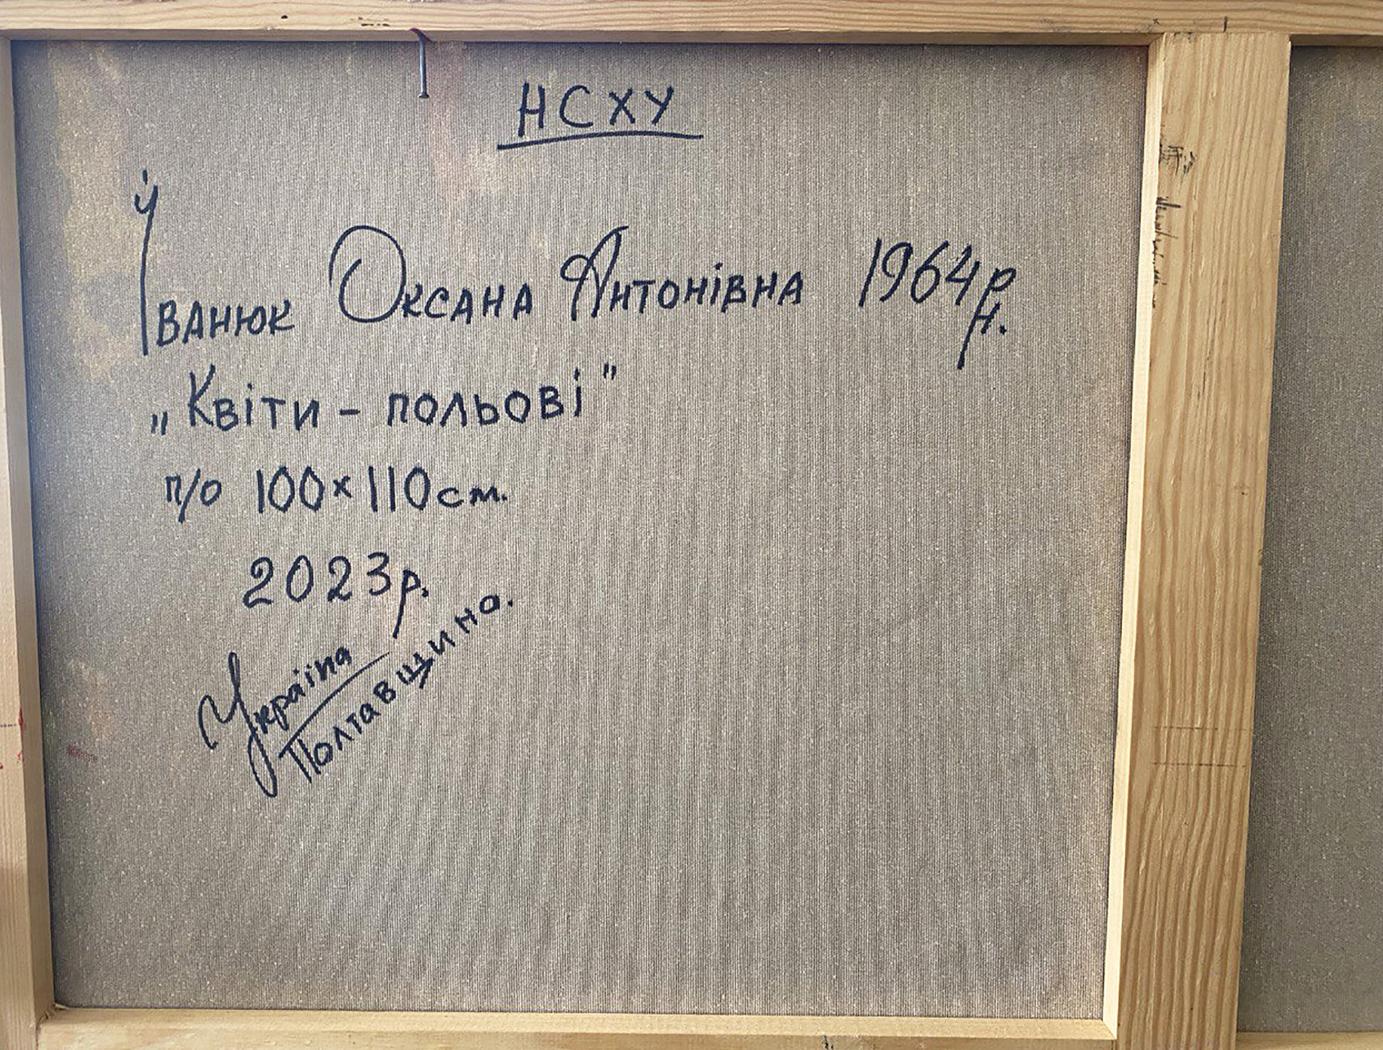 НСХУ
Іванюк Оксана Антонівна 1964 р.н.
„Квіти - польові"
п/о 100×110 см.
2023 р.
Україна
Полтавщина.